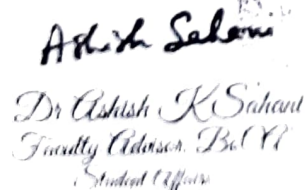 Ashish Sahani
Dr Ashish K Sahani
Faculty Advisor, BoCA
Student Affairs